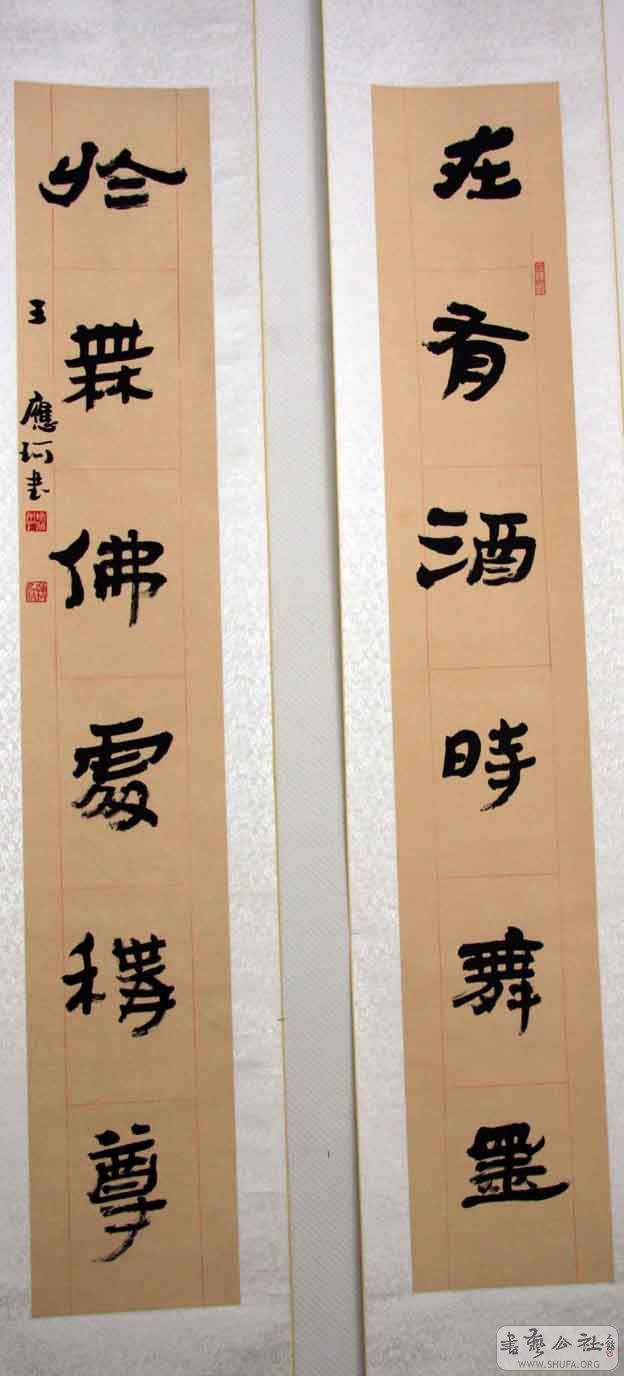 在有酒時舞墨
於無佛處稱尊
王應珂書
書藝公社
WWW.SHUFA.ORG